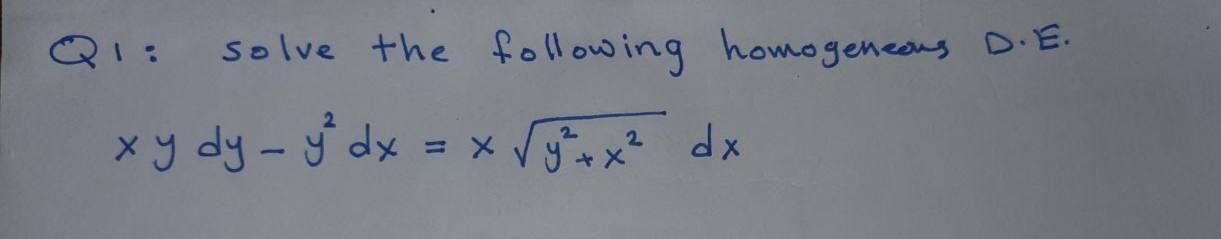 Q1: solve the following homogeneous D.E.
xy dy - y² dx = x √(y² + x²) dx